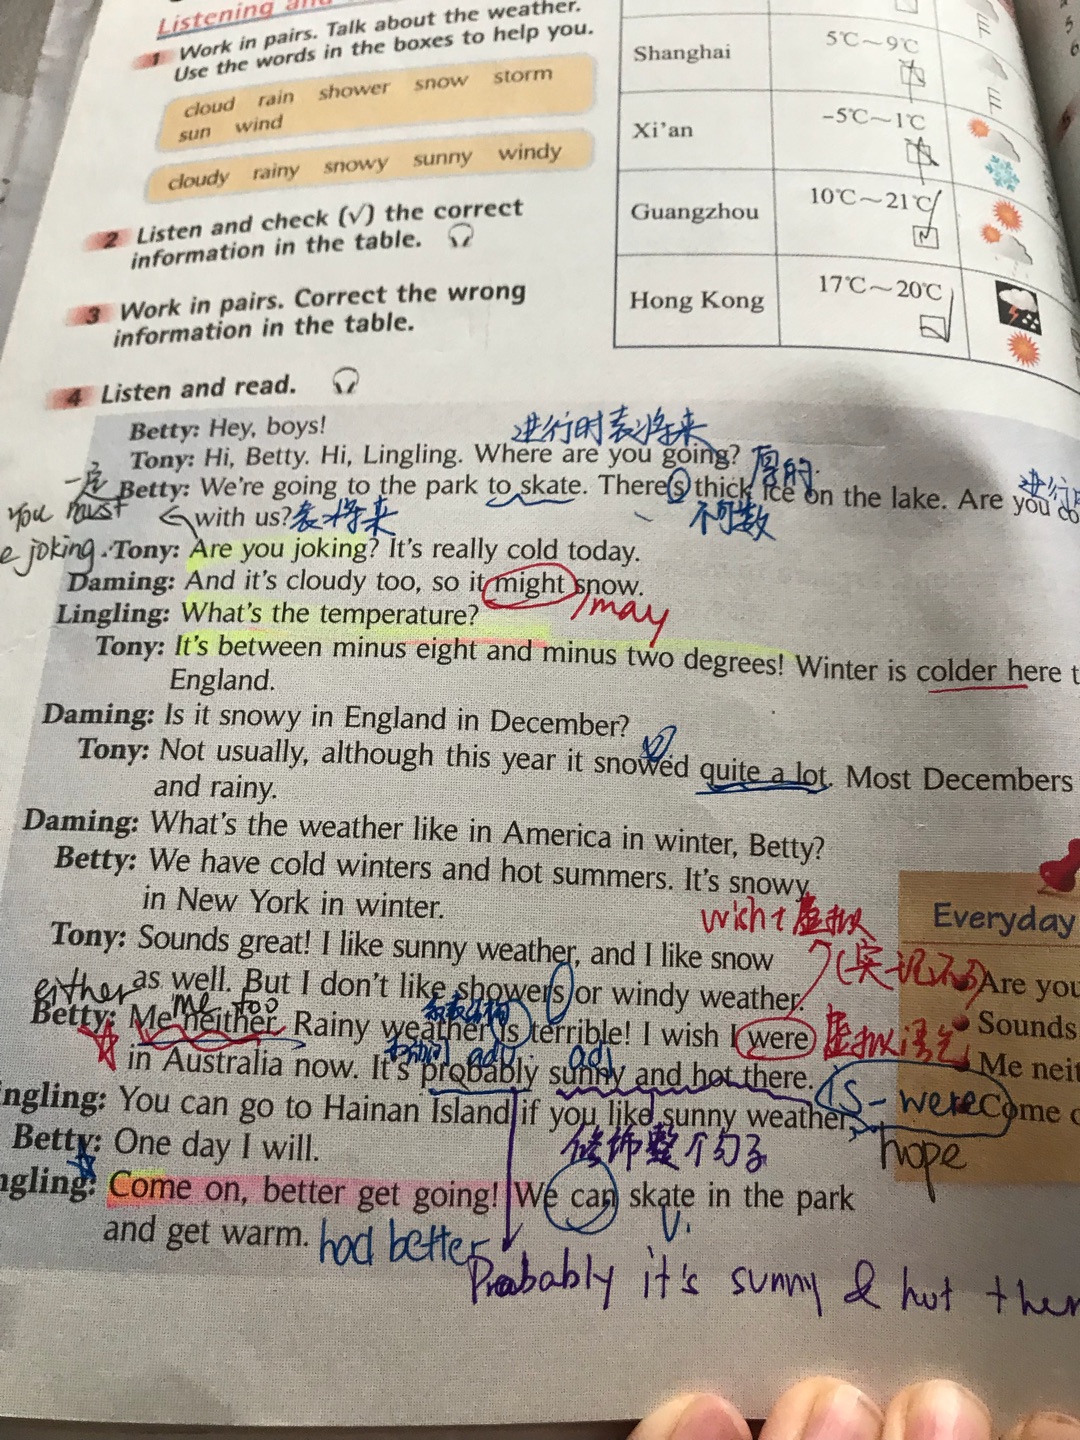 Listening and
1 Work in pairs. Talk about the weather.
Use the words in the boxes to help you.
cloud rain shower snow storm
sun wind
cloudy rainy snowy sunny windy
2 Listen and check (√) the correct
information in the table.
3 Work in pairs. Correct the wrong
information in the table.
Shanghai 5℃~9℃
Xi'an -5℃~1℃
Guangzhou 10℃~21℃
Hong Kong 17℃~20℃
4 Listen and read.
Betty: Hey, boys!
进行时表将来
Tony: Hi, Betty. Hi, Lingling. Where are you going?
厚的
一定
Betty: We're going to the park to skate. There's thick ice on the lake. Are you co
进行
you must
with us? 表将来
不可数
e joking.
Tony: Are you joking? It's really cold today.
Daming: And it's cloudy too, so it might snow.
/may
Lingling: What's the temperature?
Tony: It's between minus eight and minus two degrees! Winter is colder here t
England.
Daming: Is it snowy in England in December?
Tony: Not usually, although this year it snowed quite a lot. Most Decembers
and rainy.
Daming: What's the weather like in America in winter, Betty?
Betty: We have cold winters and hot summers. It's snowy
in New York in winter.
wish+虚拟
Everyday
Tony: Sounds great! I like sunny weather, and I like snow
as well. But I don't like showers or windy weather.
Are you
either
me too
Betty: Me neither. Rainy weather is terrible! I wish I were
虚拟语气
Sounds
adv
adj
in Australia now. It's probably sunny and hot there.
Me neit
is-were
Come o
ngling: You can go to Hainan Island if you like sunny weather.
hope
修饰整个句子
Betty: One day I will.
ngling: Come on, better get going! We can skate in the park
v.
and get warm.
had better
Probably it's sunny & hot ther